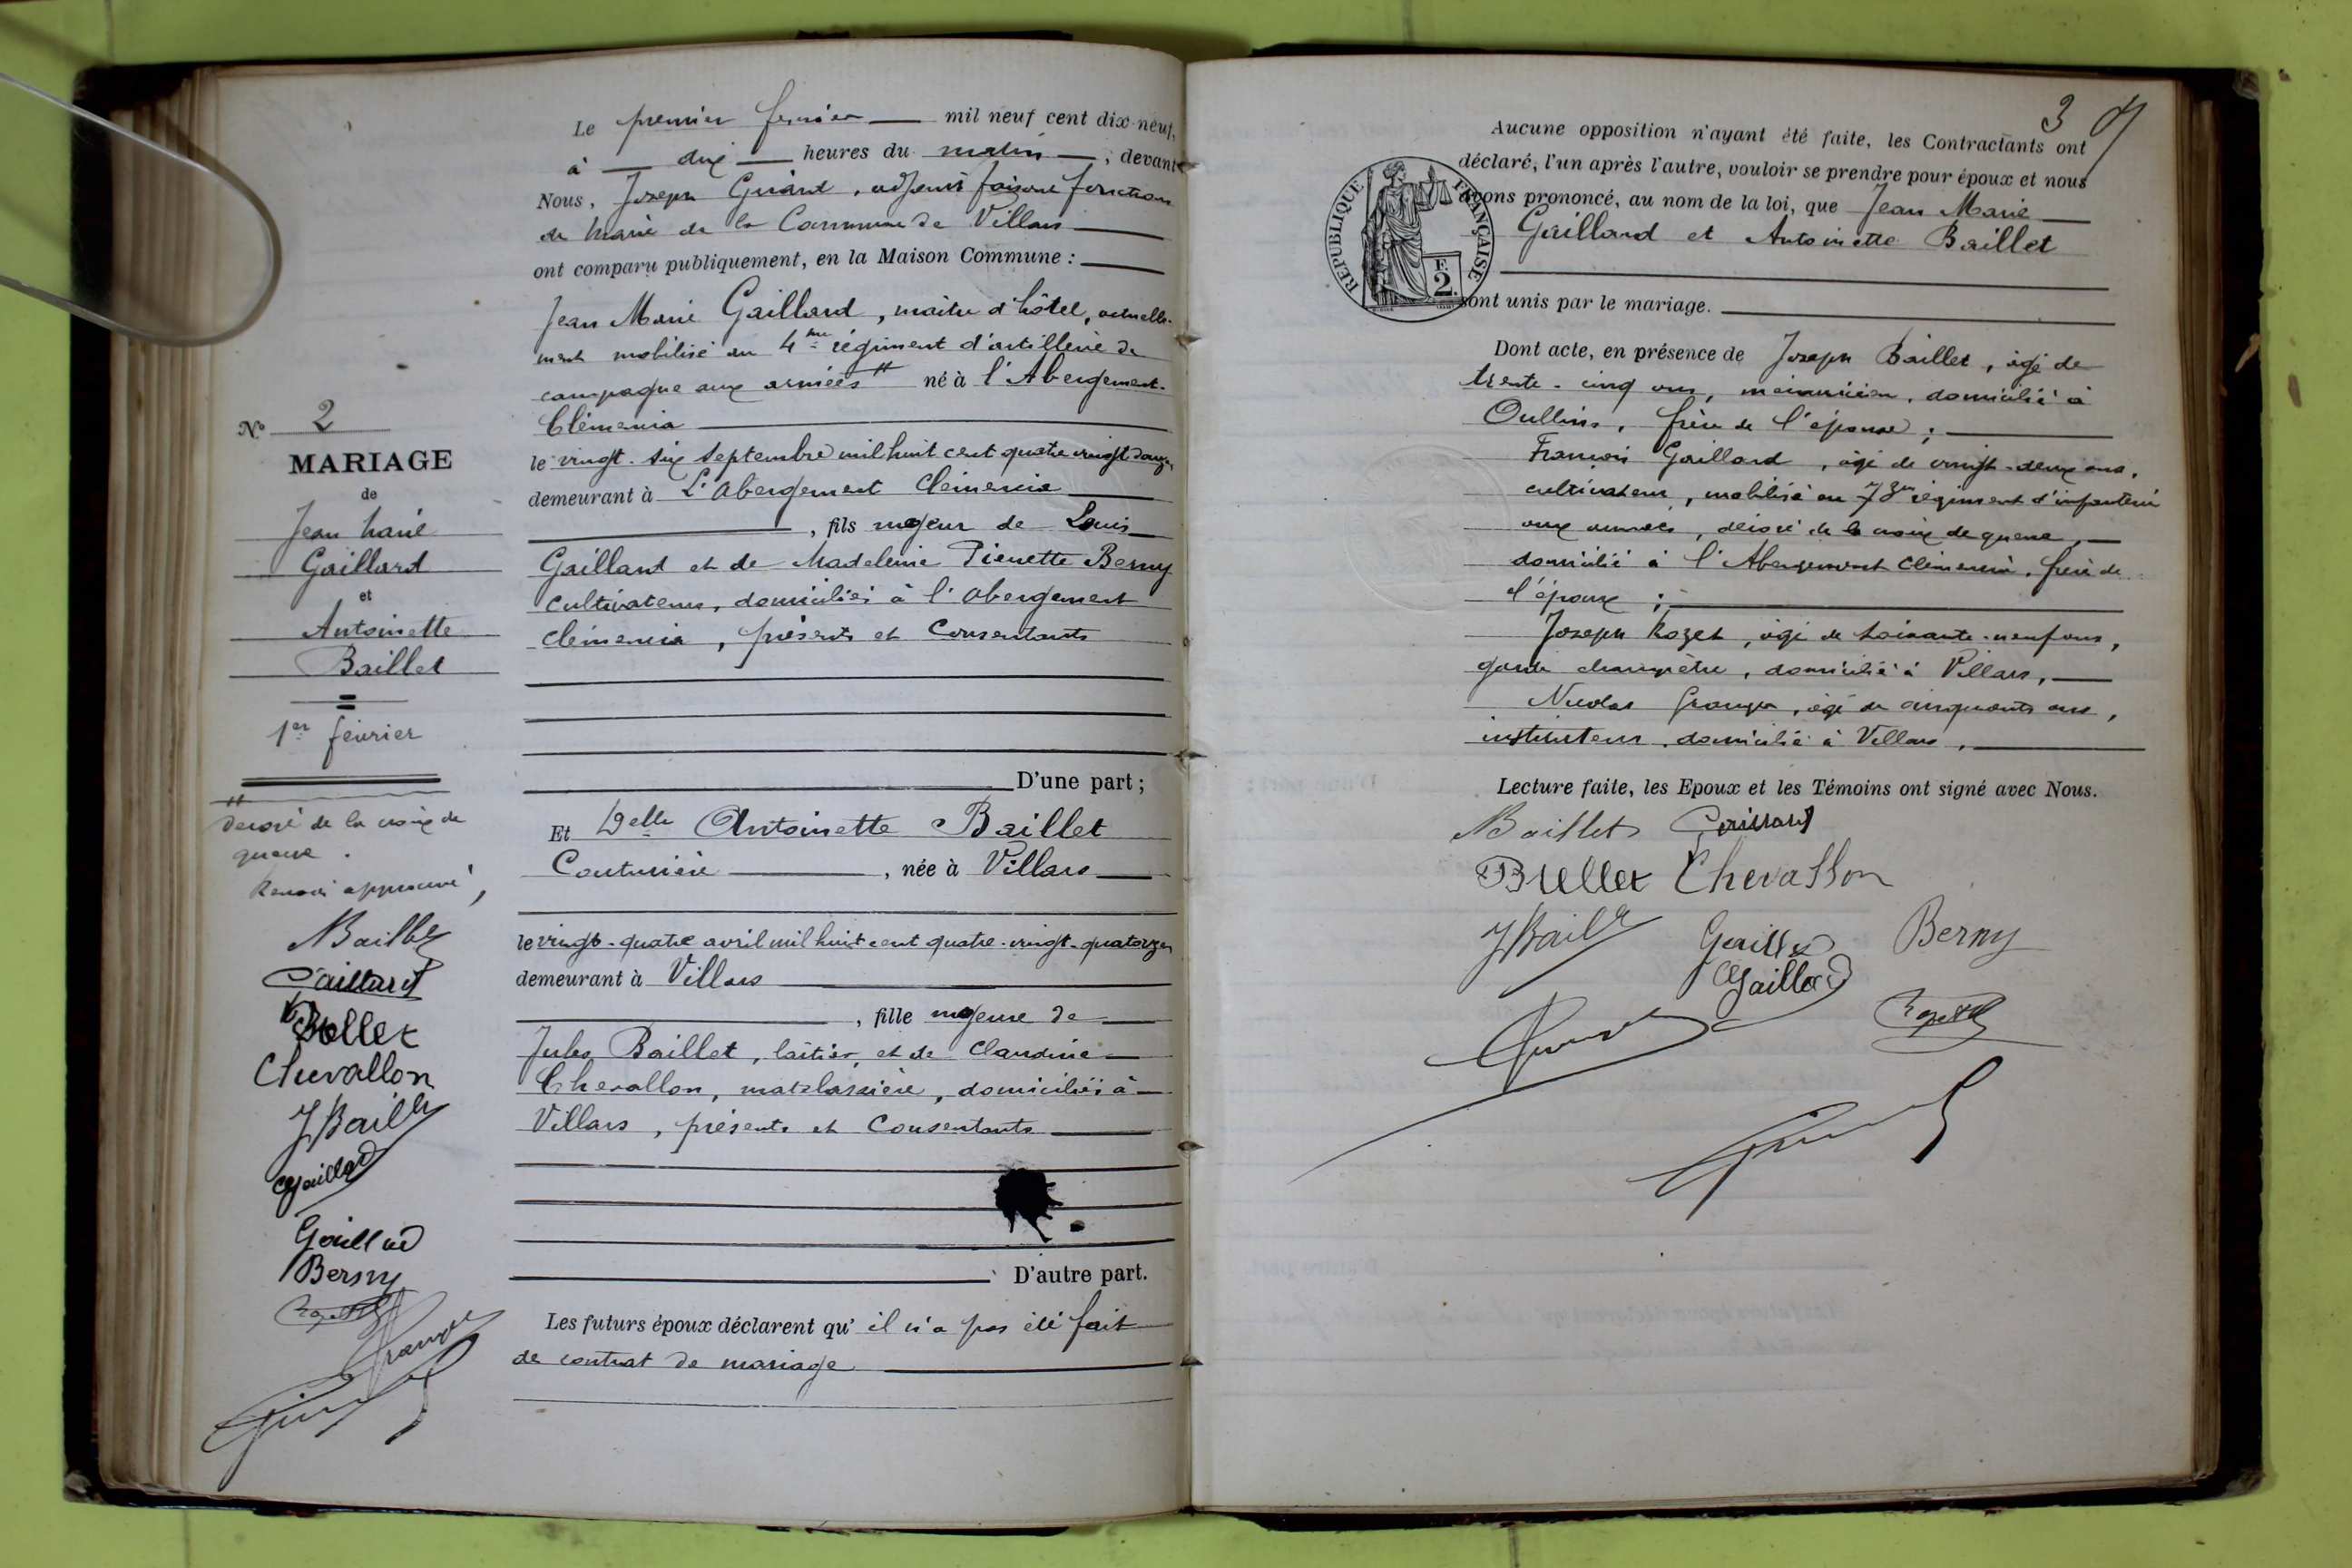 N° 2
MARIAGE
de
Jean Marie
Gaillard
et
Antoinette
Baillet
1er février
#
Décoré de la croix de
guerre.
Renvoi approuvé,
Baillet
Gaillard
Bollet
Chevallon
J Baillet
Gaillard
Gaillard
Berny
Granger
Le premier février mil neuf cent dix-neuf,
à dix heures du matin, devant
Nous, Joseph Guiard, adjoint faisant fonction
de Maire de la Commune de Villars
ont comparu publiquement, en la Maison Commune :
Jean Marie Gaillard, maître d'hôtel, actuelle-
ment mobilisé au 4me régiment d'artillerie de
campagne aux armées # né à l'Abergement-
Clémencia
le vingt-six septembre mil huit cent quatre vingt douze,
demeurant à L'Abergement Clémencia
, fils majeur de Louis
Gaillard et de Madeleine Pierrette Berny
cultivateurs, domiciliés à l'Abergement
Clémencia, présents et Consentants
D'une part ;
Et Delle Antoinette Baillet
Couturière, née à Villars
le vingt-quatre avril mil huit cent quatre-vingt-quatorze,
demeurant à Villars
, fille majeure de
Jules Baillet, laitier, et de Claudine
Chevallon, matelassière, domiciliés à
Villars, présents et Consentants
D'autre part.
Les futurs époux déclarent qu'il n'a pas été fait
de contrat de mariage
3
Aucune opposition n'ayant été faite, les Contractants ont
déclaré, l'un après l'autre, vouloir se prendre pour époux et nous
avons prononcé, au nom de la loi, que Jean Marie
Gaillard et Antoinette Baillet
RÉPUBLIQUE FRANÇAISE
F. 2.
sont unis par le mariage.
Dont acte, en présence de Joseph Baillet, âgé de
trente-cinq ans, mécanicien, domicilié à
Oullins, frère de l'épouse ;
François Gaillard, âgé de vingt-deux ans,
cultivateur, mobilisé au 73me régiment d'infanterie
aux armées, décoré de la croix de guerre,
domicilié à l'Abergement Clémencia, frère de
l'époux ;
Joseph Rozet, âgé de soixante-neuf ans,
garde champêtre, domicilié à Villars,
Nicolas Granger, âgé de cinquante ans,
instituteur, domicilié à Villars,
Lecture faite, les Epoux et les Témoins ont signé avec Nous.
Baillet Gaillard
Chevallon
J Baillet Gaillard Berny
Gaillard